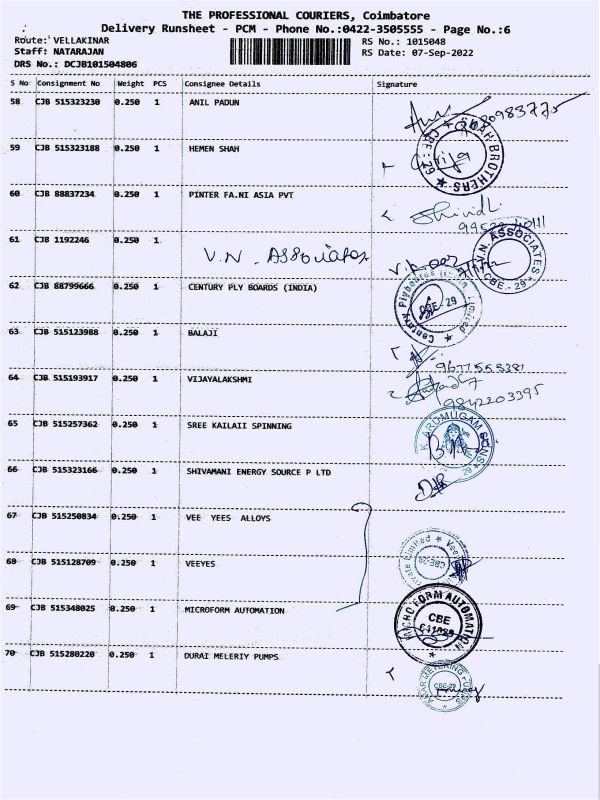 THE PROFESSIONAL COURIERS, Coimbatore
Delivery Runsheet - PCM - Phone No.:0422-3505555 - Page No.:6
Route: VELLAKINAR
RS No.: 1015048
Staff: NATARAJAN
RS Date: 07-Sep-2022
DRS No.: DCJB101504806
S No Consignment No Weight PCS Consignee Details Signature
58 CJB 515323230 0.250 1 ANIL PADUN
59 CJB 515323188 0.250 1 HEMEN SHAH
SHAH BROTHERS ★ CBE : 29 ★
60 CJB 88837234 0.250 1 PINTER FA.NI ASIA PVT
61 CJB 1192246 0.250 1 V.N. Associates
V.N. ASSOCIATES
CBE - 29
62 CJB 88799666 0.250 1 CENTURY PLY BOARDS (INDIA)
Century Plyboards India Limited
CBE - 29
63 CJB 515123988 0.250 1 BALAJI
9677553381
64 CJB 515193917 0.250 1 VIJAYALAKSHMI
9842203395
65 CJB 515257362 0.250 1 SREE KAILAII SPINNING
K.ARUMUGAM SONS
66 CJB 515323166 0.250 1 SHIVAMANI ENERGY SOURCE P LTD
67 CJB 515250834 0.250 1 VEE YEES ALLOYS
68 CJB 515128709 0.250 1 VEEYES
Private Limited ★
CBE-29
69 CJB 515348025 0.250 1 MICROFORM AUTOMATION
MICRO FORM AUTOMATION
CBE
641029
70 CJB 515280220 0.250 1 DURAI MELERIY PUMPS
METERING PUMPS
CBE-29